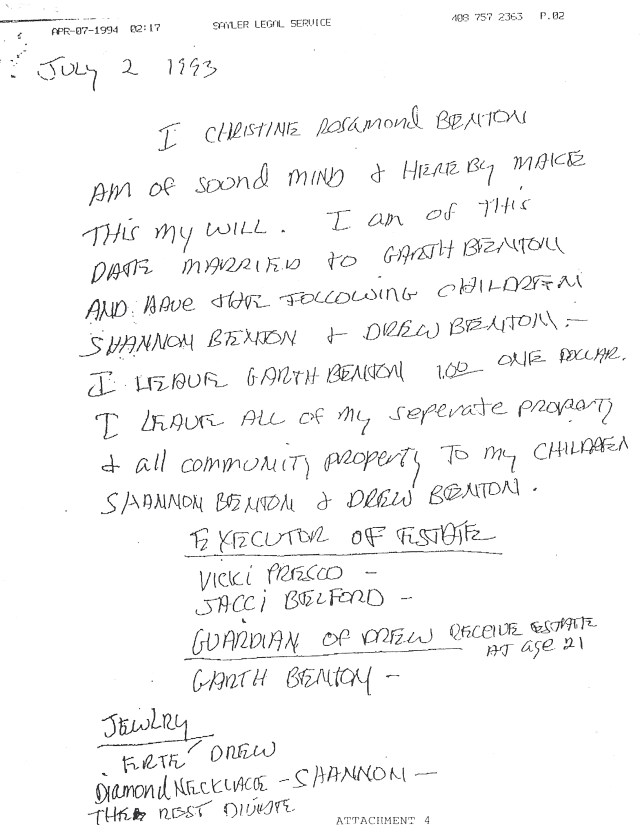 APR-07-1994 02:17 SAYLER LEGAL SERVICE 408 757 2363 P.02
JULY 2 1993
I CHRISTINE ROSAMOND BENTON
AM OF SOUND MIND & HEREBY MAKE
THIS MY WILL. I am OF THIS
DATE MARRIED TO GARTH BENTON
AND HAVE THE FOLLOWING CHILDREN
SHANNON BENTON & DREW BENTON.-
I LEAVE GARTH BENTON 1.00 ONE DOLLAR.
I LEAVE ALL OF MY SEPERATE PROPERTY
& all COMMUNITY PROPERTY TO MY CHILDREN
SHANNON BENTON & DREW BENTON.
EXECUTOR OF ESTATE
VICKI PRESCO -
JACCI BELFORD -
GUARDIAN OF DREW RECEIVE ESTATE
AT age 21
GARTH BENTON -
JEWLRY
ERTE' DREW
Diamond NECKLACE - SHANNON -
THE REST DIVIDE
ATTACHMENT 4